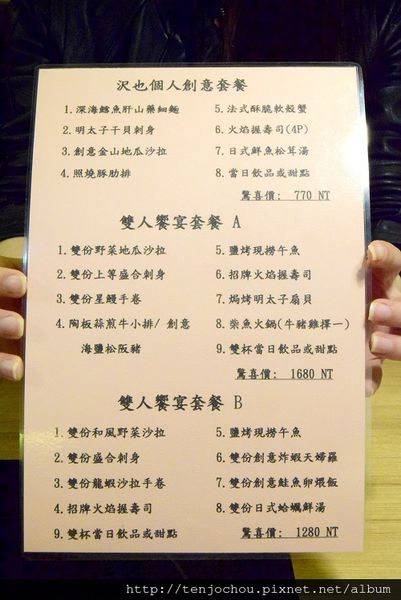 沢也個人創意套餐
1.深海鱈魚肝山藥細麵
2.明太子干貝刺身
3.創意金山地瓜沙拉
4.照燒豚肋排
5.法式酥脆軟殼蟹
6.火焰握壽司(4P)
7.日式鮮魚松茸湯
8.當日飲品或甜點
驚喜價: 770 NT
雙人饗宴套餐 A
1.雙份野菜地瓜沙拉
2.雙份上等盛合刺身
3.雙份星鰻手卷
4.陶板蒜煎牛小排/ 創意
海鹽松阪豬
5.鹽烤現撈午魚
6.招牌火焰握壽司
7.焗烤明太子扇貝
8.柴魚火鍋(牛豬雞擇一)
9.雙杯當日飲品或甜點
驚喜價: 1680 NT
雙人饗宴套餐 B
1.雙份和風野菜沙拉
2.雙份盛合刺身
3.雙份龍蝦沙拉手卷
4.招牌火焰握壽司
9.雙杯當日飲品或甜點
5.鹽烤現撈午魚
6.雙份創意炸蝦天婦羅
7.雙份創意鮭魚卵煨飯
8.雙份日式蛤蠣鮮湯
驚喜價: 1280 NT
http://tenjochou.pixnet.net/album